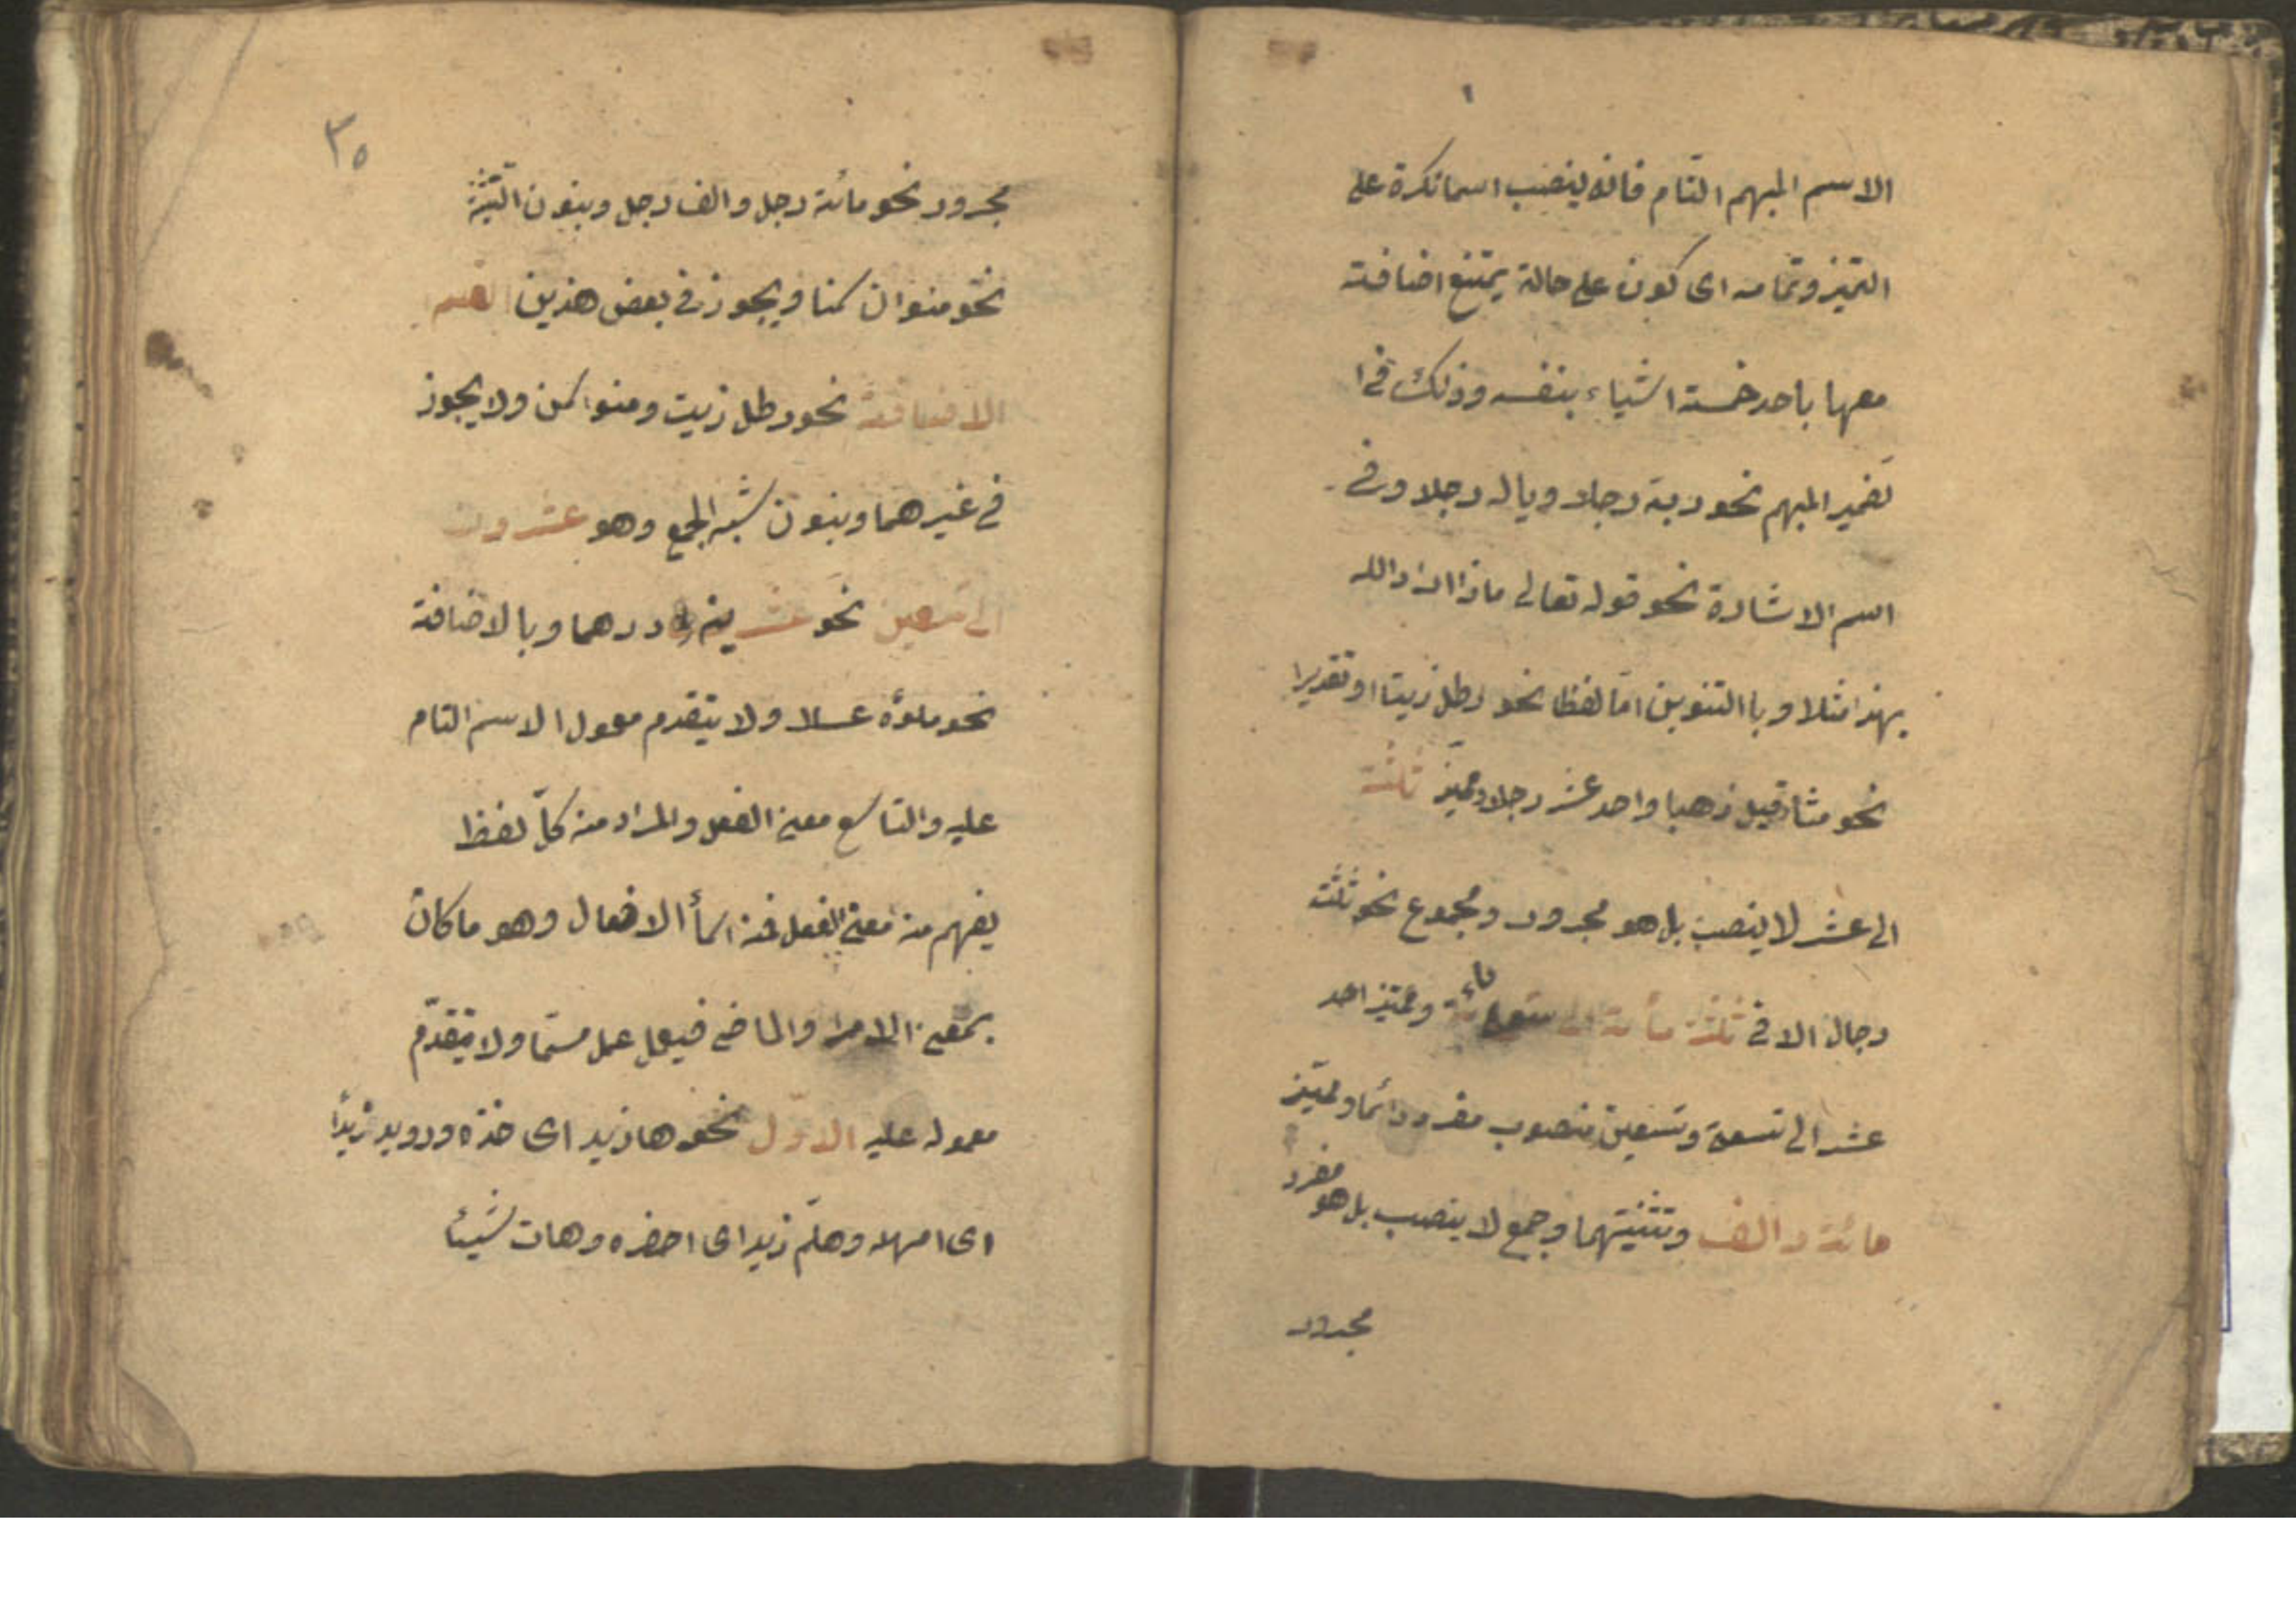 الاسم المبهم التام فانه ينصب اسما نكرة على
التميز وتمامه اى كونه على حالة يمتنع اضافته
معها باحد خمسة اشياء بنفسه وذلك فى ا
لضمير المبهم نحو ربه رجلا ويا له رجلا وفى
اسم الاشارة نحو قوله تعالى ماذا اراد الله
بهذا مثلا وباالتنوين امّا لفظا نحو رطل زيتا او تقديرا
نحو مثاقيل ذهبا واحد عشر رجلا ومميّز ثلثة
الى عشر لا ينصب بل هو مجرور ومجموع نحو ثلثة
رجال الا فى ثلثمائة الى تسعمائة ومميّز احد
عشر الى تسعة وتسعين منصوب مفرد دائما ومميّز
مائة والف وتثنيتهما وجمع لا ينصب بل هو مفرد
مجرور
٣٥
مجرور نحو مائة رجل والف رجل وبنون التثنية
نحو منوان سمنا ويجوز فى بعض هذين القسم
الاضافة نحو رطل زيت ومنوا سمن ولا يجوز
فى غيرهما وبنون شبه الجمع وهو عشرون
الى تسعين نحو عشرين درهما وبالاضافة
نحو ملؤه عسلا ولا يتقدم معمول الاسم التام
عليه والتاسع معنى الفعل والمراد منه كلّ لفظ
يفهم منه معنى الفعل فمنه اسمأ الافعال وهو ما كان
بمعنى الامر والماضى فيعمل عمل مسمّا ولا يتقدّم
معموله عليه الاوّل نحو ها زيدا اى خذه ورويد زيدأ
اى امهله وهلمّ زيدا اى احضره وهات شيئا